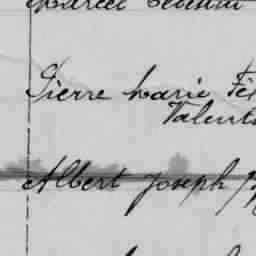 Marcel
Pierre Marie Fé
Valent
Albert Joseph